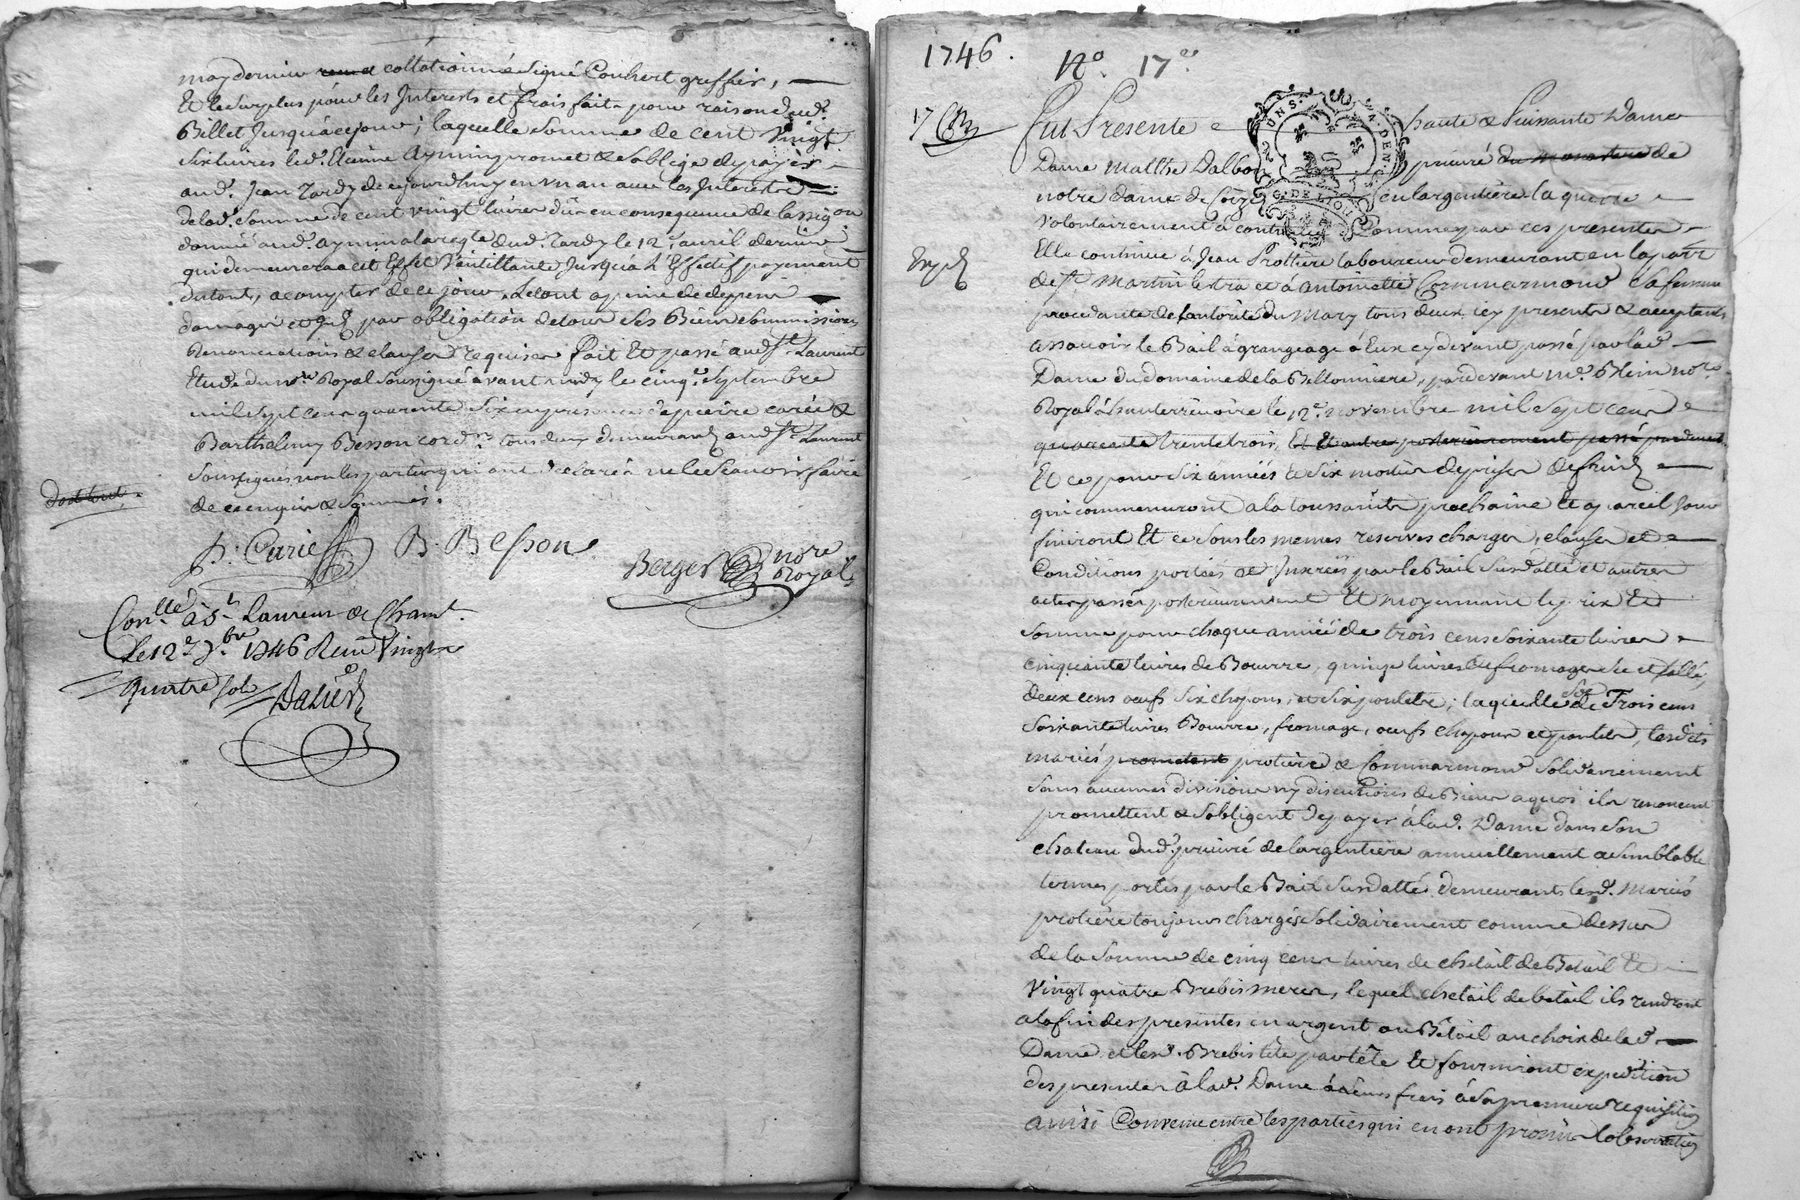 may dernier collationné signé Couhert greffier,
Et le Surplus pour les Interests et frais faits pour raison dud.
Billet Jusqu'à ce jour; laquelle Somme de cent vingt
six livres led. Etienne Aymin promet & s'oblige de payer
aud. Jean Tardy de ce jourdhuy en un an avec les Interests
de lad. Somme de cent vingt livres dûs en consequence de l'assign on
donnée aud. aymin a la req te dud. Tardy le 12 e avril dernier
qui demeurera a cet Effet Jusqu'à l'Effectif payement
du tout, a compter de ce jour, Le tout a peine de depens
domages et par obligation de tous ses Biens Soumissions
Renonciations & clauses requises fait Et passé aud. St Laurent
Etude du no re Royal Soussigné avant midy le cinq e Septembre
mil sept cens quarante six en presence de pierre carié &
Barthelemy Besson cord. rs tous deux demeurants aud. St Laurent
Soussignés non les parties qui ont declaré ne le Scavoir faire
de ce enquis & Sommés.
P. Carie B. Besson
Berger no re
Royal
Con lle à St Laurent de Cham t.
Le 12 e 7. bre 1746 Reçu Vingt
quatre sols
1746.
N o. 17 e
17
G. DE LION
fut Presente haute & Puissante Dame
Dame Marthe Dalbon prieuré du monastere de
notre dame de en largentière laquelle
volontairement à continué Comme par ces presentes
Exp.
Elle continue à Jean Protiere laboureur demeurant en la parr
de St. Martin lestra et à antoinette Commarmond Sa femme
procedante de l'autorité du Mary tous deux icy presents & acceptants
assavoir le Bail à grangeage à Eux cy devant passé par lad.
Dame du domaine de la Bellonniere, par devant M e. Blein no re
Royal à hauterivoire le 12 e novembre mil sept cens
quarante trente trois, Et Et autre posterieurement passé pardevant
Et ce pour six années & six moitiés de prises de fruits
qui commenceront a la toussaints prochaine Et a pareil jour
finiront Et ce Sous les memes reserves charges, clauses et
Conditions portées et Inserées par le Bail Susdatté et autres
actes passés posterieurement Et moyennant le prix Et
Somme pour chaque année de trois cens soixante livres
cinquante livres de Beurre, quinze livres de fromage sec et sallé,
deux cens œufs six chapons, et six poulets; laquelle S e de Trois cens
Soixante livres Beurre, fromage, œufs chapons et poulets, lesdits
mariés promettent protière & Commarmond Solidairement
Sans aucunes divisions ny discutions de Biens a quoi ils renoncent
promettent & s'obligent de payer à lad. Dame dans son
chateau dud. prieuré de largentière annuellement a semblable
termes portés par le Bail Susdatté demeurants lesd. mariés
protière toujours chargés solidairement comme dessus
de la Somme de cinq cens livres de chetail de Betail Et
Vingt quatre Brebis meres, lequel chetail de betail ils rendront
a la fin des presentes en argent ou Bétail au choix de lad.
Dame et lesd. Brebis tête par tête Et fourniront expedition
des presentes à lad. Dame à leurs frais à Sa premiere requisition
ainsi Convenu entre les parties qui en ont promis l'observation